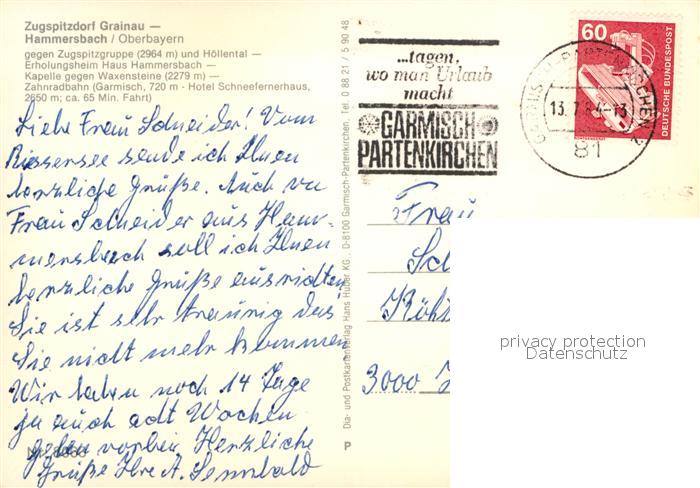 Zugspitzdorf Grainau —
Hammersbach / Oberbayern
gegen Zugspitzgruppe (2964 m) und Höllental —
Erholungsheim Haus Hammersbach —
Kapelle gegen Waxensteine (2279 m) —
Zahnradbahn (Garmisch, 720 m - Hotel Schneefernerhaus,
2650 m; ca. 65 Min. Fahrt)
Liebe Frau Schneider! Vom
Riessersee sende ich Ihnen
herzliche Grüße. Auch von
Frau Schneider aus Ham-
mersbach soll ich Ihnen
herzliche Grüße ausrichten
Sie ist sehr traurig das
Sie nicht mehr kommen
Wir haben noch 14 Tage
ja auch acht Wochen
gehen vorbei. Herzliche
Grüße Ihre A. Sennbald
Dia- und Postkartenverlag Hans Huber KG., D-8100 Garmisch-Partenkirchen, Tel. 0 88 21 / 5 90 48
P
...tagen,
wo man Urlaub
macht
GARMISCH
PARTENKIRCHEN
13.7.84-13
81
60
DEUTSCHE BUNDESPOST
Frau
Sch
3000
privacy protection
Datenschutz